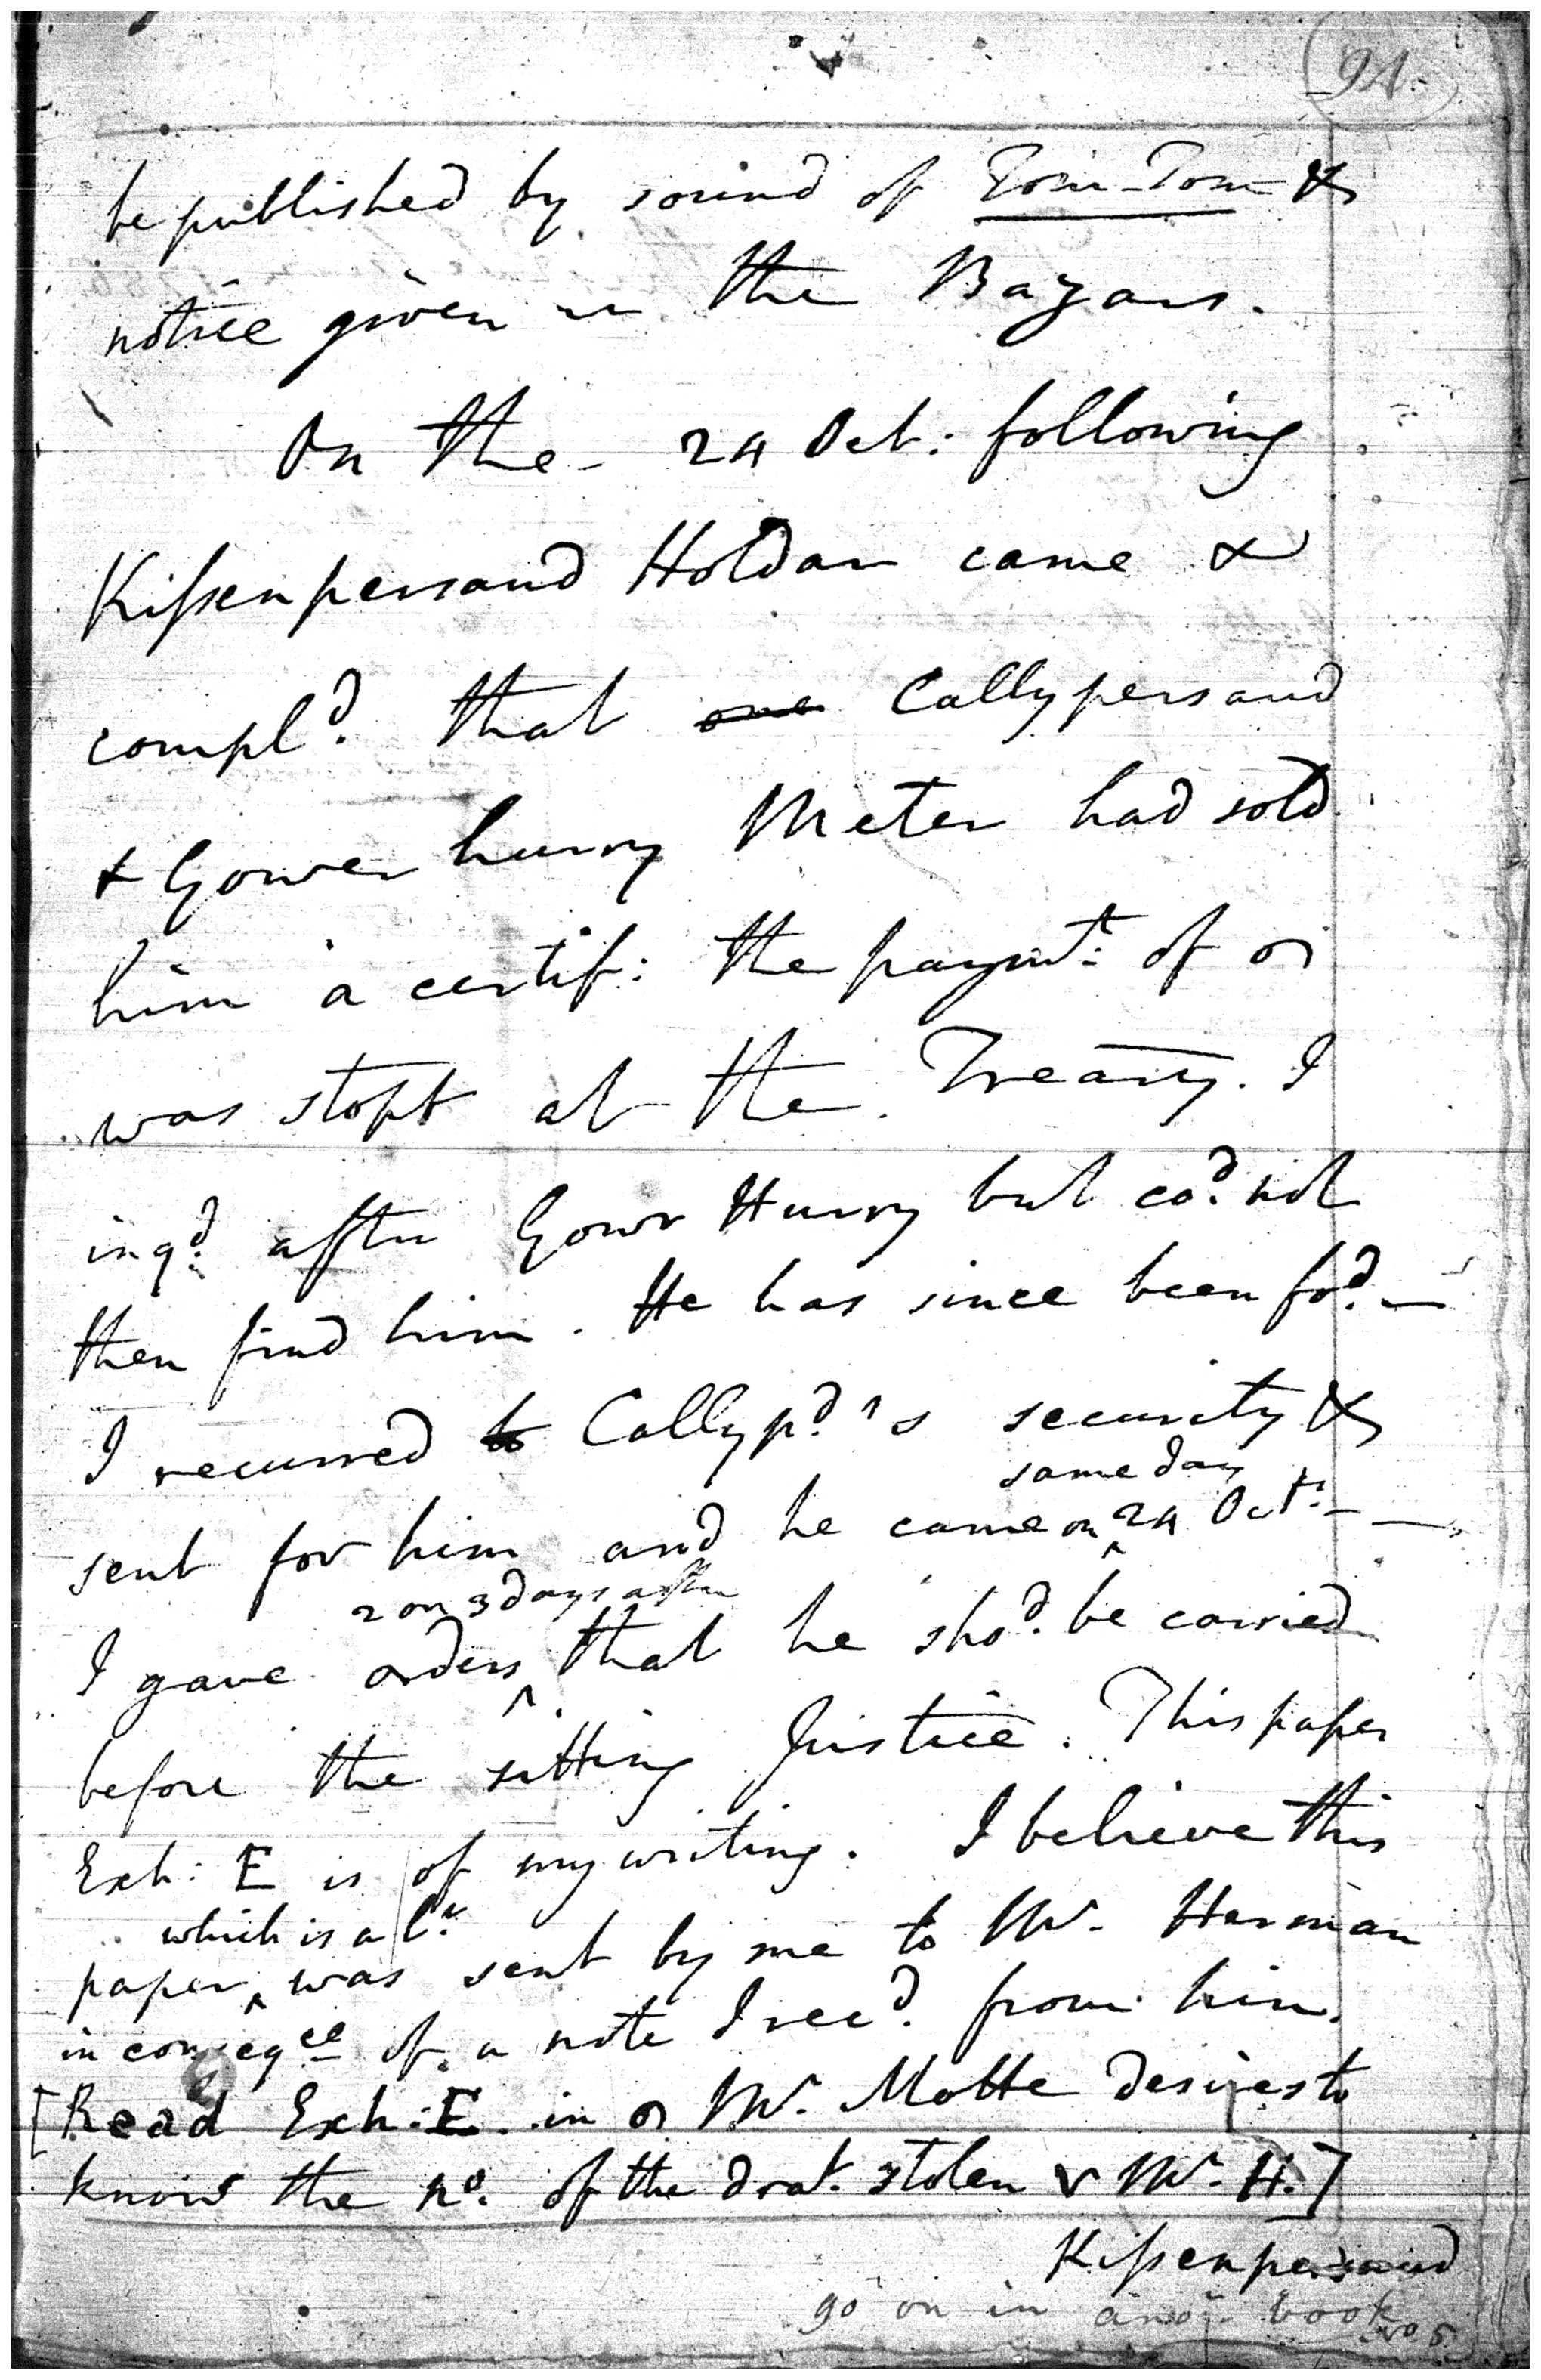 94
be published by sound of Tom-Tom &
notice given in the Bazars.
On the - 24 Oct: following
Kissenpersaud Holdar came &
compl.d that one Callypersaud
& Gower hurry Meter had sold
him a certif: the paym.t of
was stopt at the Treasy. I
inq.d after Gowr Hurry but co.d not
then find him. He has since been fo.d —
I recurred to Cally p.d's security &
same day
sent for him and he came on ^ 24 Oct.r —
2 or 3 days after
I gave orders ^ that he sho.d be carried
before the sitting Justice. This paper
Exh: E is of my writing. I believe this
which is a l.r
paper ^ was sent by me to Mr. Herman
in conseq.ce of a note I rec.d from him.
[Read Exh: E. in Mr. Motte desires to
know the no. of the dra.t stolen Mr. H.]
Kissenpersaud
go on in ano.r book
No 5